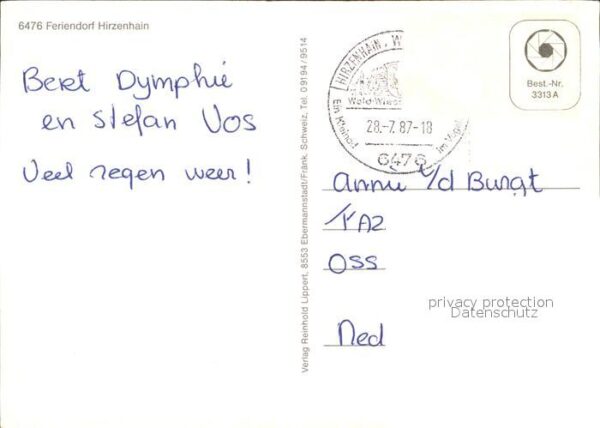 6476 Feriendorf Hirzenhain
Bert Dymphie
en Stefan Vos
Veel regen weer!
Verlag Reinhold Lippert, 8553 Ebermannstadt/Fränk. Schweiz, Tel. 09194/9514
HIRZENHAIN, W
28.-7.87-18
6476
Best.-Nr.
3313 A
Annu v/d Burgt
OSS
Ned
privacy protection
Datenschutz